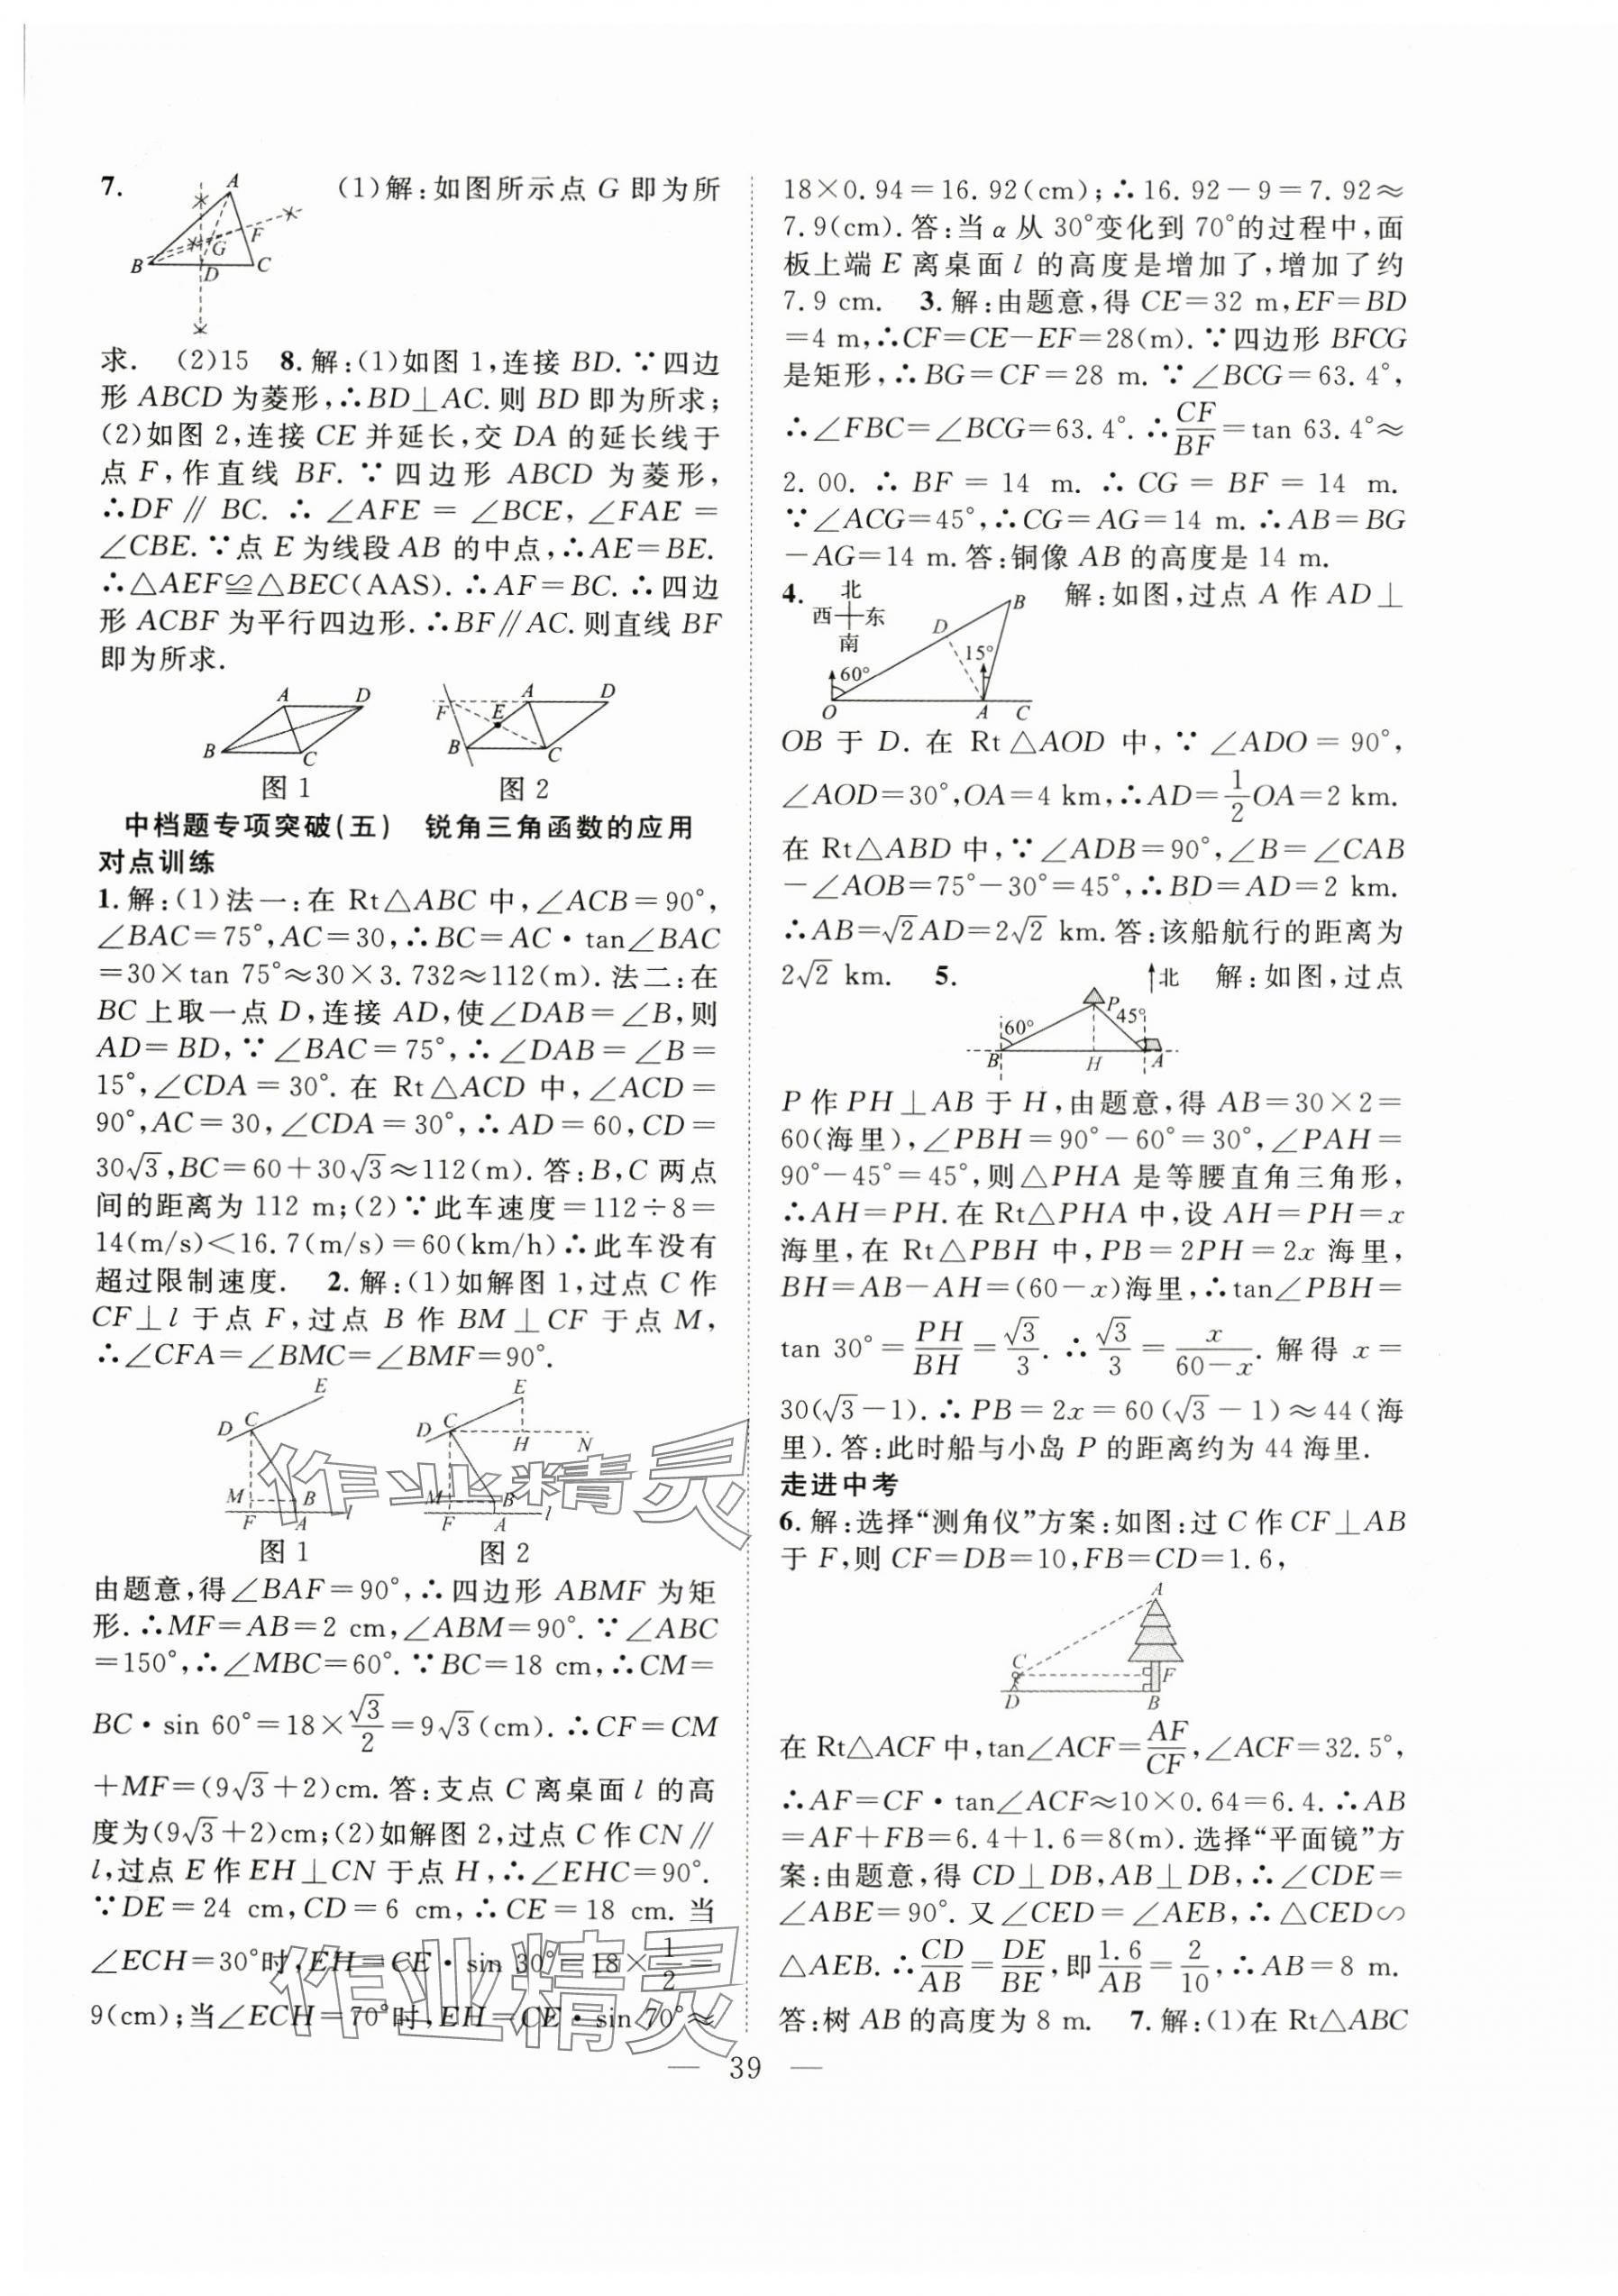 7.
A
F
G
B
D
C
(1)解:如图所示点 G 即为所
求. (2)15 8.解:(1)如图1,连接 BD.∵四边
形 ABCD 为菱形,∴BD⊥AC.则 BD 即为所求;
(2)如图2,连接 CE 并延长,交 DA 的延长线于
点 F,作直线 BF.∵四边形 ABCD 为菱形,
∴DF∥BC.∴∠AFE=∠BCE,∠FAE=
∠CBE.∵点 E 为线段 AB 的中点,∴AE=BE.
∴△AEF≌△BEC(AAS).∴AF=BC.∴四边
形 ACBF 为平行四边形.∴BF∥AC.则直线 BF
即为所求.
A D
B C
图1
A D
F E
B C
图2
中档题专项突破(五) 锐角三角函数的应用
对点训练
1.解:(1)法一:在 Rt△ABC 中,∠ACB=90°,
∠BAC=75°,AC=30,∴BC=AC·tan∠BAC
=30×tan 75°≈30×3.732≈112(m).法二:在
BC 上取一点 D,连接 AD,使∠DAB=∠B,则
AD=BD,∵∠BAC=75°,∴∠DAB=∠B=
15°,∠CDA=30°.在 Rt△ACD 中,∠ACD=
90°,AC=30,∠CDA=30°,∴AD=60,CD=
30√3,BC=60+30√3≈112(m).答:B,C 两点
间的距离为 112 m;(2)∵此车速度=112÷8=
14(m/s)<16.7(m/s)=60(km/h)∴此车没有
超过限制速度. 2.解:(1)如解图1,过点 C 作
CF⊥l 于点 F,过点 B 作 BM⊥CF 于点 M,
∴∠CFA=∠BMC=∠BMF=90°.
E
D C
M B
F A l
图1
E
D C
H N
M B
F A l
图2
由题意,得∠BAF=90°,∴四边形 ABMF 为矩
形.∴MF=AB=2 cm,∠ABM=90°.∵∠ABC
=150°,∴∠MBC=60°.∵BC=18 cm,∴CM=
BC·sin 60°=18×√3/2=9√3(cm).∴CF=CM
+MF=(9√3+2)cm.答:支点 C 离桌面 l 的高
度为(9√3+2)cm;(2)如解图2,过点 C 作 CN∥
l,过点 E 作 EH⊥CN 于点 H,∴∠EHC=90°.
∵DE=24 cm,CD=6 cm,∴CE=18 cm.当
∠ECH=30°时,EH=CE·sin 30°=18×1/2=
9(cm);当∠ECH=70°时,EH=CE·sin 70°≈
18×0.94=16.92(cm);∴16.92-9=7.92≈
7.9(cm).答:当 α 从 30°变化到 70°的过程中,面
板上端 E 离桌面 l 的高度是增加了,增加了约
7.9 cm. 3.解:由题意,得 CE=32 m,EF=BD
=4 m,∴CF=CE-EF=28(m).∵四边形 BFCG
是矩形,∴BG=CF=28 m.∵∠BCG=63.4°,
∴∠FBC=∠BCG=63.4°.∴CF/BF=tan 63.4°≈
2.00.∴BF=14 m.∴CG=BF=14 m.
∵∠ACG=45°,∴CG=AG=14 m.∴AB=BG
-AG=14 m.答:铜像 AB 的高度是 14 m.
4.
北
西 东
南
B
D
15°
60°
O A C
解:如图,过点 A 作 AD⊥
OB 于 D.在 Rt△AOD 中,∵∠ADO=90°,
∠AOD=30°,OA=4 km,∴AD=1/2OA=2 km.
在 Rt△ABD 中,∵∠ADB=90°,∠B=∠CAB
-∠AOB=75°-30°=45°,∴BD=AD=2 km.
∴AB=√2AD=2√2 km.答:该船航行的距离为
2√2 km. 5.
北
P
60° 45°
B H A
解:如图,过点
P 作 PH⊥AB 于 H,由题意,得 AB=30×2=
60(海里),∠PBH=90°-60°=30°,∠PAH=
90°-45°=45°,则△PHA 是等腰直角三角形,
∴AH=PH.在 Rt△PHA 中,设 AH=PH=x
海里,在 Rt△PBH 中,PB=2PH=2x 海里,
BH=AB-AH=(60-x)海里,∴tan∠PBH=
tan 30°=PH/BH=√3/3.∴√3/3=x/(60-x).解得 x=
30(√3-1).∴PB=2x=60(√3-1)≈44(海
里).答:此时船与小岛 P 的距离约为 44 海里.
走进中考
6.解:选择“测角仪”方案:如图:过 C 作 CF⊥AB
于 F,则 CF=DB=10,FB=CD=1.6,
A
C F
D B
在 Rt△ACF 中,tan∠ACF=AF/CF,∠ACF=32.5°,
∴AF=CF·tan∠ACF≈10×0.64=6.4.∴AB
=AF+FB=6.4+1.6=8(m).选择“平面镜”方
案:由题意,得 CD⊥DB,AB⊥DB,∴∠CDE=
∠ABE=90°.又∠CED=∠AEB,∴△CED∽
△AEB.∴CD/AB=DE/BE,即1.6/AB=2/10,∴AB=8 m.
答:树 AB 的高度为 8 m. 7.解:(1)在 Rt△ABC
— 39 —
作业精灵
作业精灵